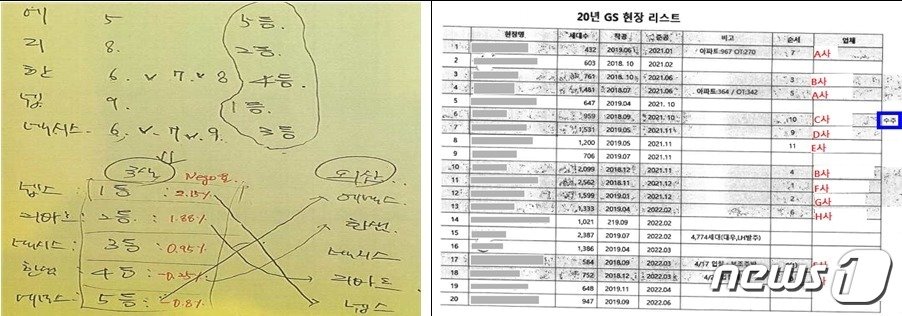 에 5 5등
리 8. 2등.
한 6. v 7. v 8 4등
넵. 9. 1등.
네시스. 6. v 7 v 9. 3등
Nego로.
넵스. 1등 : 2.15% 에넥스.
리바트. 2등 : 1.88% 한샘.
네시스. 3등 : 0.95% 네시스.
한샘 4등 : -0.25% 리바트.
에넥스. 5등 : -0.8% 넵스
20년 GS 현장 리스트
현장명 세대수 착공 준공 비고 순서 업체
1 432 2019.06 2021.01 아파트:967 OT:270 7 A사
2 603 2018. 10 2021.02
3 761 2018. 10 2021.06 3 B사
4 1,481 2018.07 2021.06 아파트:364 / OT:342 5 A사
5 647 2019.04 2021. 10
6 959 2018.09 2021. 10 10 C사 수주
7 1,531 2019.05 2021.11 9 D사
8 1,200 2019.05 2021.11 11 E사
9 706 2019.07 2021.11
10 2,099 2018.12 2021.11 4 B사
11 2,562 2018.11 2021.12 1 F사
12 1,599 2019.03 2021.12 2 G사
13 1,333 2019.04 2022.02 6 H사
14 1,021 219.09 2022.02
15 2,387 2019.07 2022.02 4,774세대(대우,LH발주)
16 1,386 2019.04 2022.03
17 584 2018.09 2022.03 4/17 입찰
18 752 2018.12 2022.03
19 648 2019.11 2022.04
20 947 2019.06 2022.06
news1